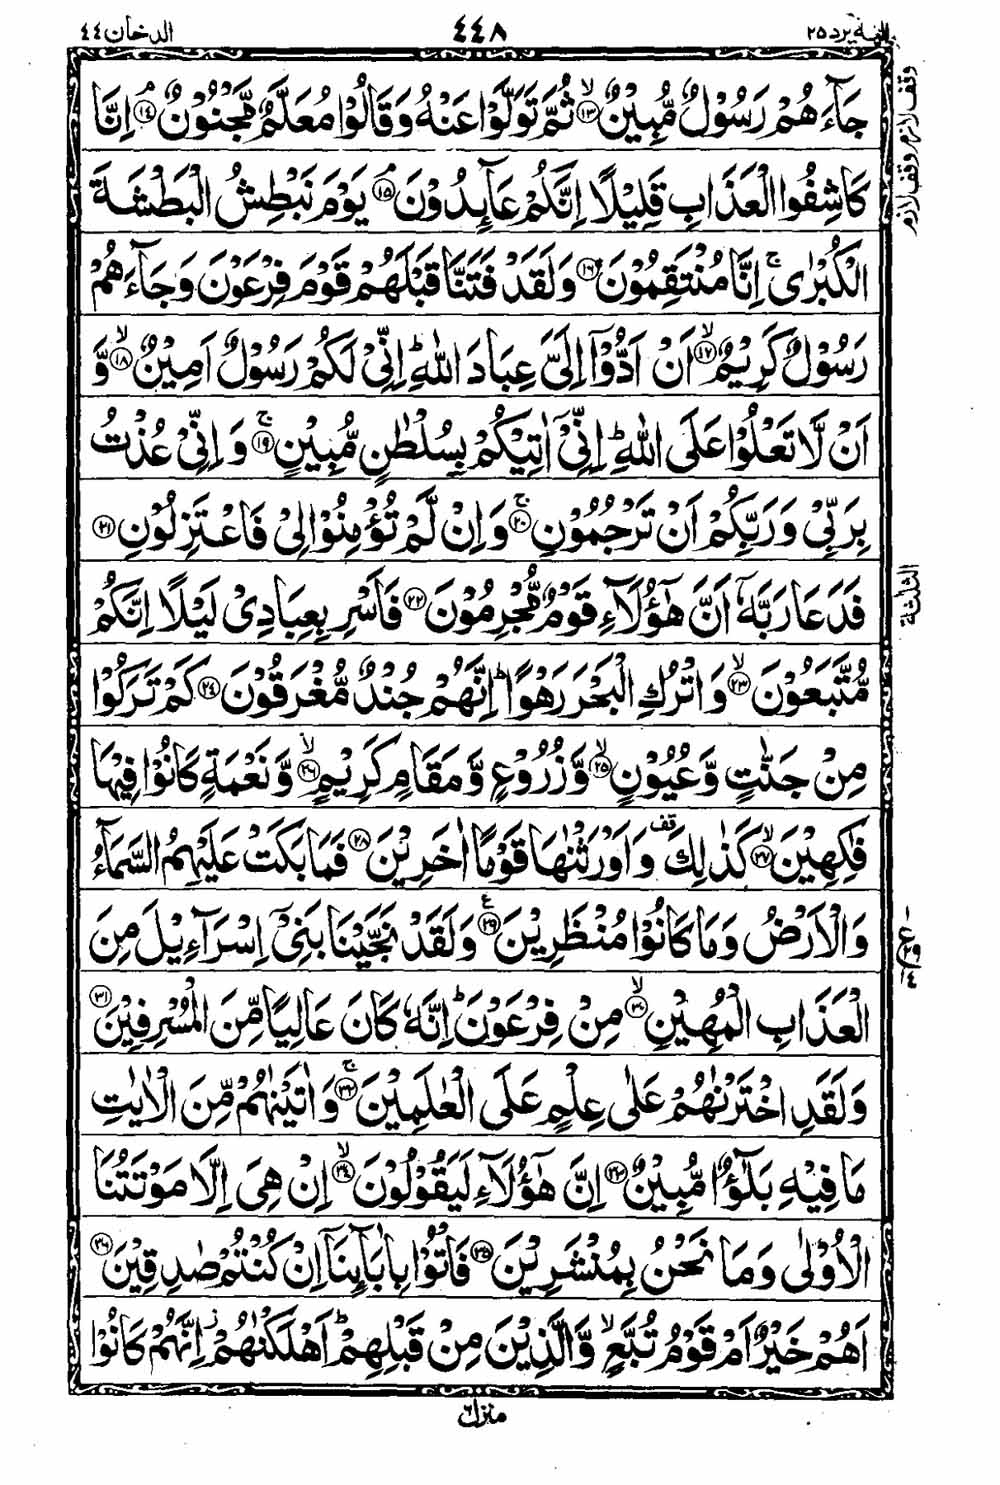 اليه يرد ٢٥ ٤٤٨ الدخان ٤٤
جَآءَهُمْ رَسُوْلٌ مُّبِيْنٌ ۙ﴿١٣﴾ ثُمَّ تَوَلَّوْا عَنْهُ وَقَالُوْا مُعَلَّمٌ مَّجْنُوْنٌ ۘ﴿١٤﴾ اِنَّا
كَاشِفُوا الْعَذَابِ قَلِيْلًا اِنَّكُمْ عَآئِدُوْنَ ۘ﴿١٥﴾ يَوْمَ نَبْطِشُ الْبَطْشَةَ
الْكُبْرٰى ۚ اِنَّا مُنْتَقِمُوْنَ ﴿١٦﴾ وَلَقَدْ فَتَنَّا قَبْلَهُمْ قَوْمَ فِرْعَوْنَ وَجَآءَهُمْ
رَسُوْلٌ كَرِيْمٌ ۙ﴿١٧﴾ اَنْ اَدُّوْۤا اِلَىَّ عِبَادَ اللّٰهِ ؕ اِنِّىْ لَكُمْ رَسُوْلٌ اَمِيْنٌ ۙ﴿١٨﴾ وَّ
اَنْ لَّا تَعْلُوْا عَلَى اللّٰهِ ؕ اِنِّىْۤ اٰتِيْكُمْ بِسُلْطٰنٍ مُّبِيْنٍ ۚ﴿١٩﴾ وَ اِنِّىْ عُذْتُ
بِرَبِّىْ وَرَبِّكُمْ اَنْ تَرْجُمُوْنِ ۚ﴿٢٠﴾ وَ اِنْ لَّمْ تُؤْمِنُوْا لِىْ فَاعْتَزِلُوْنِ ﴿٢١﴾
فَدَعَا رَبَّهٗۤ اَنَّ هٰٓؤُلَآءِ قَوْمٌ مُّجْرِمُوْنَ ﴿٢٢﴾ فَاَسْرِ بِعِبَادِىْ لَيْلًا اِنَّكُمْ
مُّتَّبَعُوْنَ ۙ﴿٢٣﴾ وَاتْرُكِ الْبَحْرَ رَهْوًا ؕ اِنَّهُمْ جُنْدٌ مُّغْرَقُوْنَ ﴿٢٤﴾ كَمْ تَرَكُوْا
مِنْ جَنّٰتٍ وَّعُيُوْنٍ ۙ﴿٢٥﴾ وَّزُرُوْعٍ وَّمَقَامٍ كَرِيْمٍ ۙ﴿٢٦﴾ وَّنَعْمَةٍ كَانُوْا فِيْهَا
فٰكِهِيْنَ ۙ﴿٢٧﴾ كَذٰلِكَ قف وَاَوْرَثْنٰهَا قَوْمًا اٰخَرِيْنَ ﴿٢٨﴾ فَمَا بَكَتْ عَلَيْهِمُ السَّمَآءُ
وَالْاَرْضُ وَمَا كَانُوْا مُنْظَرِيْنَ ﴿٢٩﴾ وَلَقَدْ نَجَّيْنَا بَنِىْۤ اِسْرَآءِيْلَ مِنَ
الْعَذَابِ الْمُهِيْنِ ۙ﴿٣٠﴾ مِنْ فِرْعَوْنَ ؕ اِنَّهٗ كَانَ عَالِيًا مِّنَ الْمُسْرِفِيْنَ ﴿٣١﴾
وَلَقَدِ اخْتَرْنٰهُمْ عَلٰى عِلْمٍ عَلَى الْعٰلَمِيْنَ ۚ﴿٣٢﴾ وَاٰتَيْنٰهُمْ مِّنَ الْاٰيٰتِ
مَا فِيْهِ بَلٰٓؤٌا مُّبِيْنٌ ﴿٣٣﴾ اِنَّ هٰٓؤُلَآءِ لَيَقُوْلُوْنَ ۙ﴿٣٤﴾ اِنْ هِىَ اِلَّا مَوْتَتُنَا
الْاُوْلٰى وَمَا نَحْنُ بِمُنْشَرِيْنَ ﴿٣٥﴾ فَاْتُوْا بِاٰبَآئِنَاۤ اِنْ كُنْتُمْ صٰدِقِيْنَ ﴿٣٦﴾
اَهُمْ خَيْرٌ اَمْ قَوْمُ تُبَّعٍ ۙ وَّالَّذِيْنَ مِنْ قَبْلِهِمْ ؕ اَهْلَكْنٰهُمْ ؗ اِنَّهُمْ كَانُوْا
وقف لازم وقف لازم
الثلثة
ع
منزل ٦